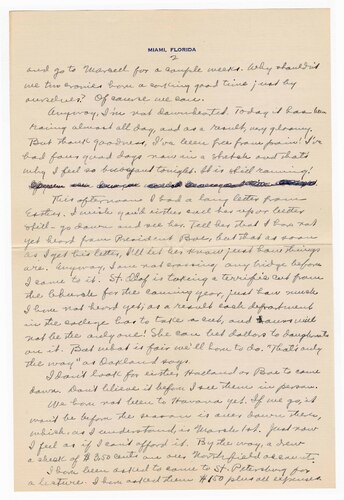 MIAMI, FLORIDA
2
and go to Marsell for a couple weeks. Why shouldn't
we two cronies have a corking good time just by
ourselves? Of course we can.
Anyway, I'm not downhearted. Today it has been
raining almost all day, and as a result, very gloomy.
But thank goodness, I've been free from pain! I've
had four good days now in a stretch and that's
why I feel so tonight. It is still raining!
This afternoon I had a long letter from
Esther. I wish you'd either call her up or better
still - go down and see her. Tell her that I have not
yet heard from President Boe, but that as soon
as I get his letter, I'll let her know just how things
are. Anyway, I am not crossing any bridge before
I came to it. St. Olaf is taking a terrific cut from
the church for the coming year, just how much
I have not heard yet, as a result each department
in the college has to take a cut, and ours will
not be the only one! She can bet dollars to doughnuts
on it. But what is fair we'll have to do. "That's only
the way" as Oakland says.
I don't look for either Holland or Boe to come
down. Don't believe it before I see them in person.
We have not been to Havana yet. If we go, it
won't be before the season is over down there,
which, as I understand, is March 1st. Just now
I feel as if I can't afford it. By the way, I drew
a check of $3.50 cents on our Northfield account.
I have been asked to come to St. Petersburg for
a lecture. I have asked them $150 plus all expenses